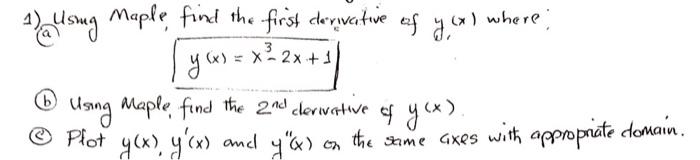 1) (a) Using Maple, find the first derivative of y(x) where:
y(x) = x³ - 2x + 1
(b) Using Maple, find the 2nd derivative of y(x).
(c) Plot y(x), y'(x) and y"(x) on the same axes with appropriate domain.